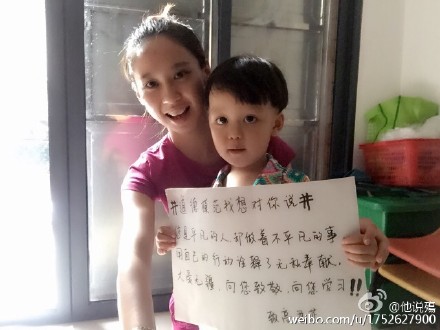 #道德模范我想对你说#
您是平凡的人却做着不平凡的事
用自己的行动诠释了无私奉献,
大爱无疆,向您致敬,向您学习!!
@他说瑪
weibo.com/u/1752627900